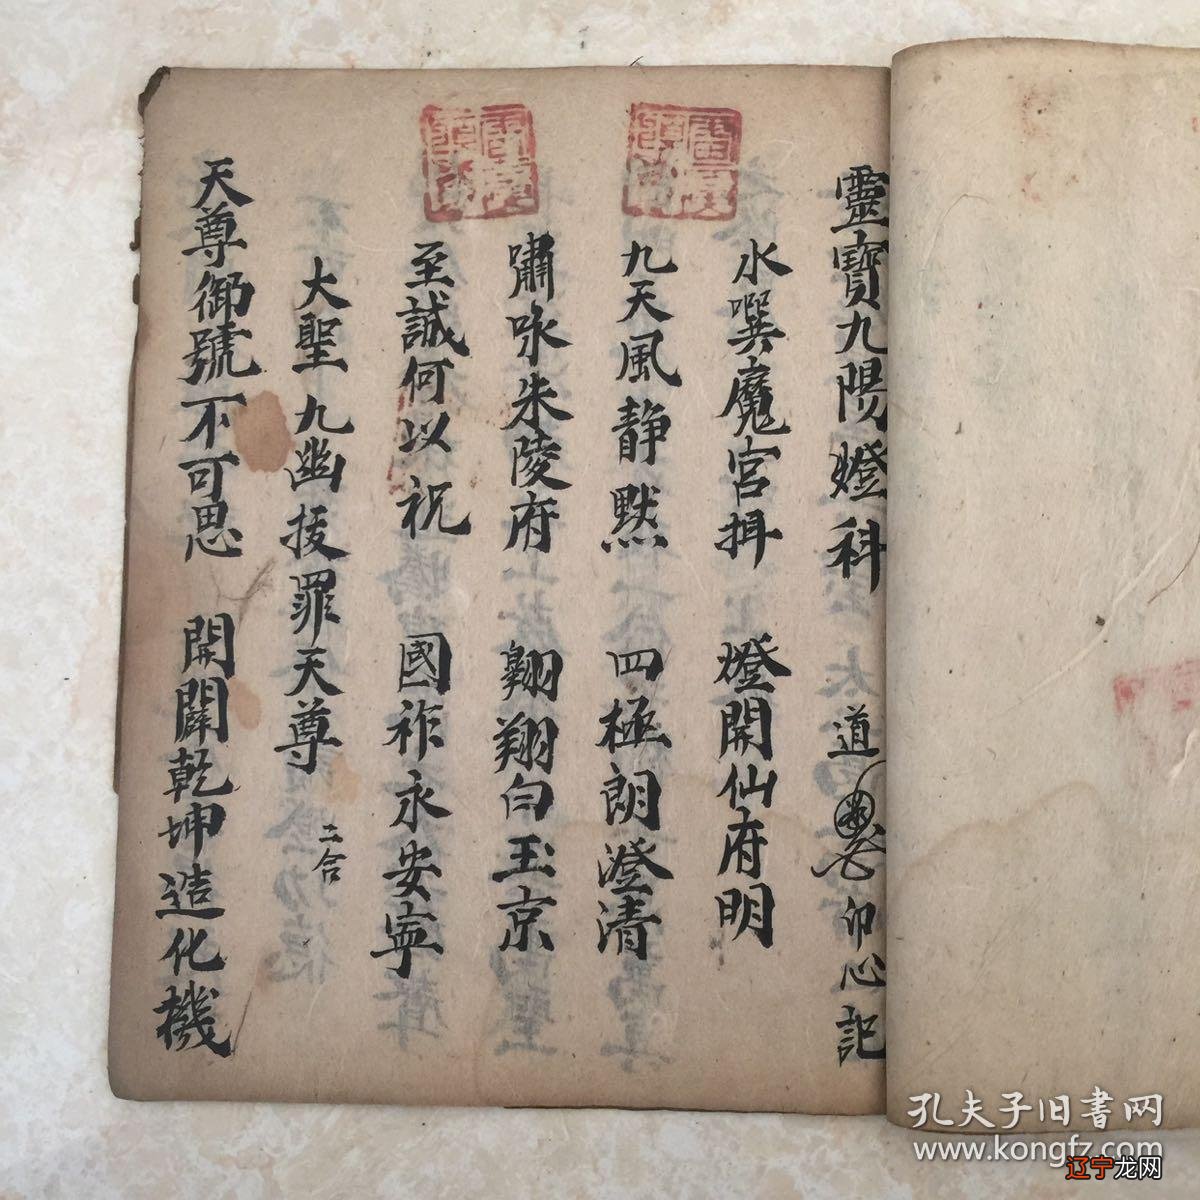 靈寶九陽燈科 道 印心記
水噀魔宮 燈開仙府明
九天風静默 四極朗澄清
嘯咏朱陵府 翱翔白玉京
至誠何以祝 國祚永安寧
大聖九幽拔罪天尊 二合
天尊御號不可思 開闢乾坤造化機
孔夫子旧書网
www.kongfz.com
辽宁龙网